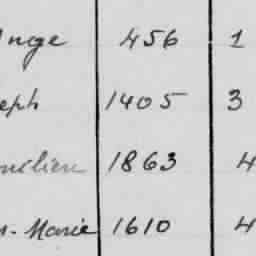 Ange 456 1
eph 1405 3
milien 1863 4
n-Marie 1610 4